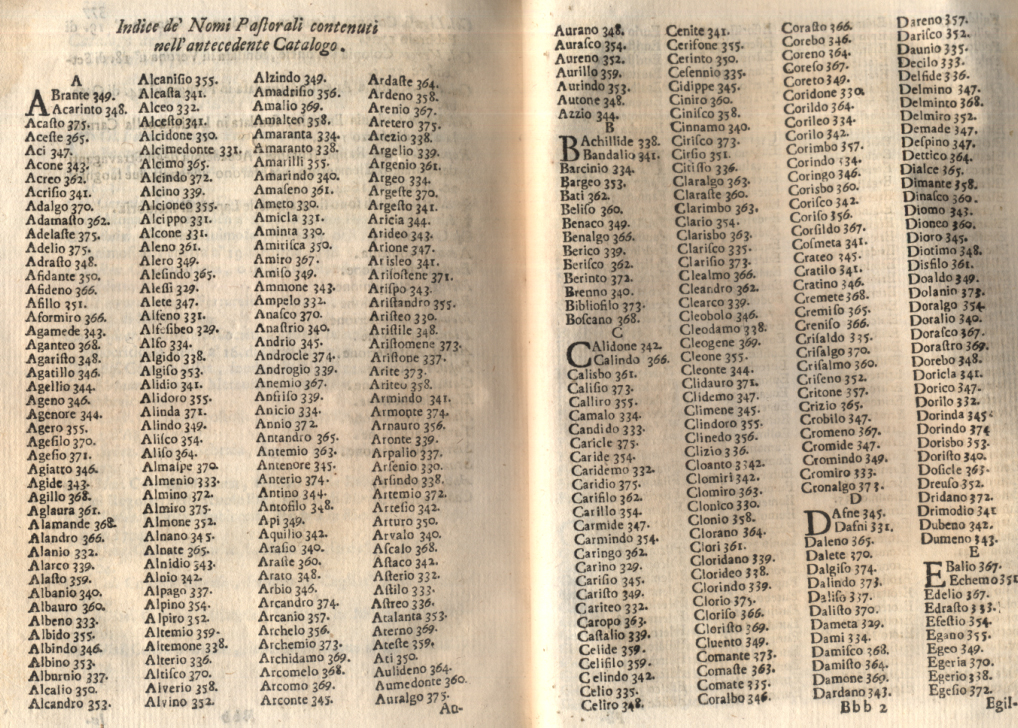 Indice de' Nomi Paſtorali contenuti
nell'antecedente Catalogo.
A
ABrante 349.
Acarinto 348.
Acaſto 375.
Aceſte 365.
Aci 347.
Acone 343.
Acreo 362.
Acriſio 341.
Adalgo 370.
Adamaſto 362.
Adelaſte 375.
Adelio 375.
Adraſto 348.
Afidante 350.
Afideno 366.
Afillo 351.
Aformiro 366.
Agamede 343.
Aganteo 368.
Agariſto 348.
Agatillo 346.
Agellio 344.
Ageno 346.
Agenore 344.
Agero 355.
Ageſilo 370.
Ageſio 371.
Agiatto 346.
Agide 343.
Agillo 368.
Aglaura 361.
Alamande 368.
Alandro 366.
Alanio 332.
Alarco 339.
Alaſto 359.
Albanio 340.
Albauro 360.
Albeno 333.
Albido 355.
Albindo 346.
Albino 353.
Alburnio 337.
Alcalio 350.
Alcandro 353.
Alcaniſio 355.
Alcaſta 341.
Alceo 332.
Alceſto 341.
Alcidone 350.
Alcimedonte 331.
Alcimo 365.
Alcindo 372.
Alcino 339.
Alcioneo 355.
Alcippo 331.
Alcone 331.
Aleno 361.
Alero 349.
Aleſindo 365.
Aleſſi 329.
Alete 347.
Alfeno 331.
Alfeſibeo 329.
Alfo 334.
Algido 338.
Algiſo 353.
Alidio 341.
Alidoro 355.
Alinda 371.
Alindo 349.
Aliſco 354.
Aliſo 364.
Almaipe 370.
Almenio 333.
Almino 372.
Almiro 375.
Almone 352.
Alnano 345.
Alnate 365.
Alnidio 343.
Alnio 342.
Alpago 337.
Alpino 354.
Alpiro 352.
Altemio 359.
Altemone 338.
Alterio 336.
Altiſco 370.
Alverio 358.
Alvino 352.
Alzindo 349.
Amadriſio 356.
Amalio 369.
Amalteo 358.
Amaranta 334.
Amaranto 338.
Amarilli 355.
Amarindo 340.
Amaſeno 361.
Ameto 330.
Amicla 331.
Aminta 330.
Amiriſca 350.
Amiro 367.
Amiſo 349.
Ammone 343.
Ampelo 332.
Anaſco 370.
Anaſtrio 340.
Andrio 345.
Androcle 374.
Androgio 339.
Anemio 367.
Anfiſo 339.
Anicio 334.
Annio 372.
Antandro 365.
Antemio 363.
Antenore 345.
Anterio 374.
Antino 344.
Antofilo 348.
Api 349.
Aquilio 342.
Araſio 340.
Araſte 360.
Arato 348.
Arbio 346.
Arcandro 374.
Arcanio 357.
Archelo 356.
Archemio 373.
Archidamo 369.
Arcomelo 368.
Arcomo 369.
Arconte 345.
Ardaſte 364.
Ardeno 358.
Arenio 367.
Aretero 375.
Arezio 338.
Argelio 339.
Argenio 361.
Argeo 334.
Argeſte 370.
Argeſto 341.
Aricia 344.
Arideo 343.
Arione 347.
Ariſleo 341.
Ariſoſtene 371.
Ariſpo 343.
Ariſtandro 355.
Ariſteo 330.
Ariſtile 348.
Ariſtomene 373.
Ariſtone 337.
Arite 373.
Ariteo 358.
Armindo 341.
Armonte 374.
Arnauro 356.
Aronte 339.
Arpalio 337.
Arſenio 330.
Arſindo 338.
Artemio 372.
Arteſio 342.
Arturo 350.
Arvalo 340.
Aſcalo 368.
Aſtaco 342.
Aſterio 332.
Aſtilo 333.
Aſtreo 336.
Atalanta 353.
Aterno 369.
Ateſte 359.
Ati 350.
Aulideno 364.
Aumedonte 360.
Auralgo 375.
An-
Aurano 348.
Auraſco 354.
Aureno 352.
Aurillo 359.
Aurindo 353.
Autone 348.
Azzio 344.
B
BAchillide 338.
Bandalio 341.
Barcinio 334.
Bargeo 353.
Bati 362.
Beliſo 360.
Benaco 349.
Benalgo 366.
Berico 339.
Beriſco 362.
Berinto 372.
Brenno 340.
Bibliofilo 373.
Boſcano 368.
C
CAlidone 342.
Calindo 366.
Calisbo 361.
Caliſio 373.
Calliro 355.
Camalo 334.
Candido 333.
Caricle 375.
Caride 354.
Caridemo 332.
Caridio 375.
Carifilo 362.
Carillo 354.
Carmide 347.
Carmindo 354.
Caringo 362.
Carino 329.
Cariſio 345.
Cariſto 349.
Cariteo 332.
Caropo 363.
Caſtalio 339.
Celide 359.
Celifilo 359.
Celindo 342.
Celio 335.
Celiro 348.
Cenite 341.
Cerifone 355.
Cerinto 350.
Ceſennio 335.
Cidippe 345.
Ciniro 360.
Ciniſco 358.
Cinnamo 340.
Ciriſco 373.
Cirſio 351.
Citiſſo 336.
Claralgo 363.
Claraſte 360.
Clarimbo 363.
Clario 354.
Clarisbo 363.
Clariſco 335.
Clariſio 373.
Clealmo 366.
Cleandro 362.
Clearco 339.
Cleobolo 346.
Cleodamo 338.
Cleogene 369.
Cleone 355.
Cleonte 344.
Clidauro 371.
Clidemo 347.
Climene 345.
Clindoro 355.
Clinedo 356.
Clizio 336.
Cloanto 3342.
Clomiri 342.
Clomiro 363.
Clonico 330.
Clonio 358.
Clorano 364.
Clori 361.
Cloridano 339.
Clorideo 338.
Clorindo 339.
Clorio 375.
Cloriſo 366.
Cloriſto 369.
Cluento 349.
Comante 373.
Comaſte 363.
Comate 335.
Coralbo 346.
Coraſto 366.
Corebo 346.
Coreno 364.
Coreſo 367.
Coreto 349.
Coridone 330.
Corildo 364.
Corileo 334.
Corilo 342.
Corimbo 357.
Corindo 334.
Coringo 346.
Corisbo 360.
Coriſco 342.
Coriſo 356.
Corſildo 367.
Coſmeta 341.
Crateo 345.
Cratilo 341.
Cratino 346.
Cremete 368.
Cremiſo 365.
Creniſo 366.
Criſaldo 335.
Criſalgo 370.
Criſalmo 360.
Criſeno 352.
Critone 357.
Crizio 365.
Crobilo 347.
Cromeno 367.
Cromide 347.
Cromindo 349.
Cromiro 333.
Cronalgo 373.
D
DAfne 345.
Dafni 331.
Daleno 365.
Dalete 370.
Dalgiſo 374.
Dalindo 373.
Daliſo 337.
Daliſto 370.
Dameta 329.
Dami 334.
Damiſco 368.
Damiſto 364.
Damone 369.
Dardano 343.
Bbb 2
Dareno 357.
Dariſco 352.
Daunio 335.
Decilo 333.
Delfide 336.
Delmino 347.
Delminto 368.
Delmiro 352.
Demade 347.
Deſpino 347.
Dettico 364.
Dialce 365.
Dimante 358.
Dinaſco 360.
Diomo 343.
Dioneo 360.
Dioro 345.
Diotimo 348.
Disfilo 361.
Doaldo 349.
Dolanio 373.
Doralgo 354.
Doralio 340.
Doraſco 367.
Doraſtro 369.
Dorebo 348.
Doricla 341.
Dorico 347.
Dorilo 332.
Dorinda 345.
Dorindo 374
Dorisbo 353.
Doriſto 340.
Doſicle 365.
Dreuſo 352.
Dridano 372.
Drimodio 341
Dubeno 342.
Dumeno 343.
E
EBalio 367.
Echemo 351
Edelio 367.
Edraſto 353.
Efeſtio 354.
Egano 355.
Egeo 349.
Egeria 370.
Egerio 338.
Egeſio 372.
Egil-